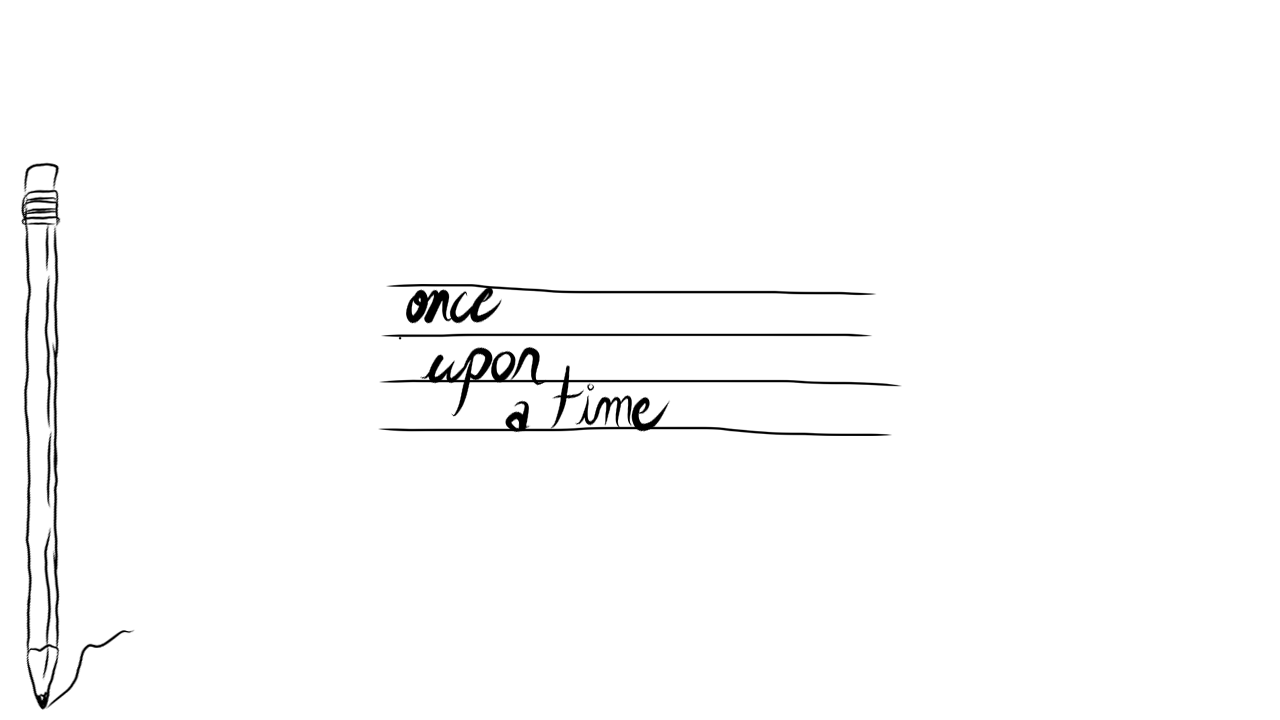 once
upon
a time